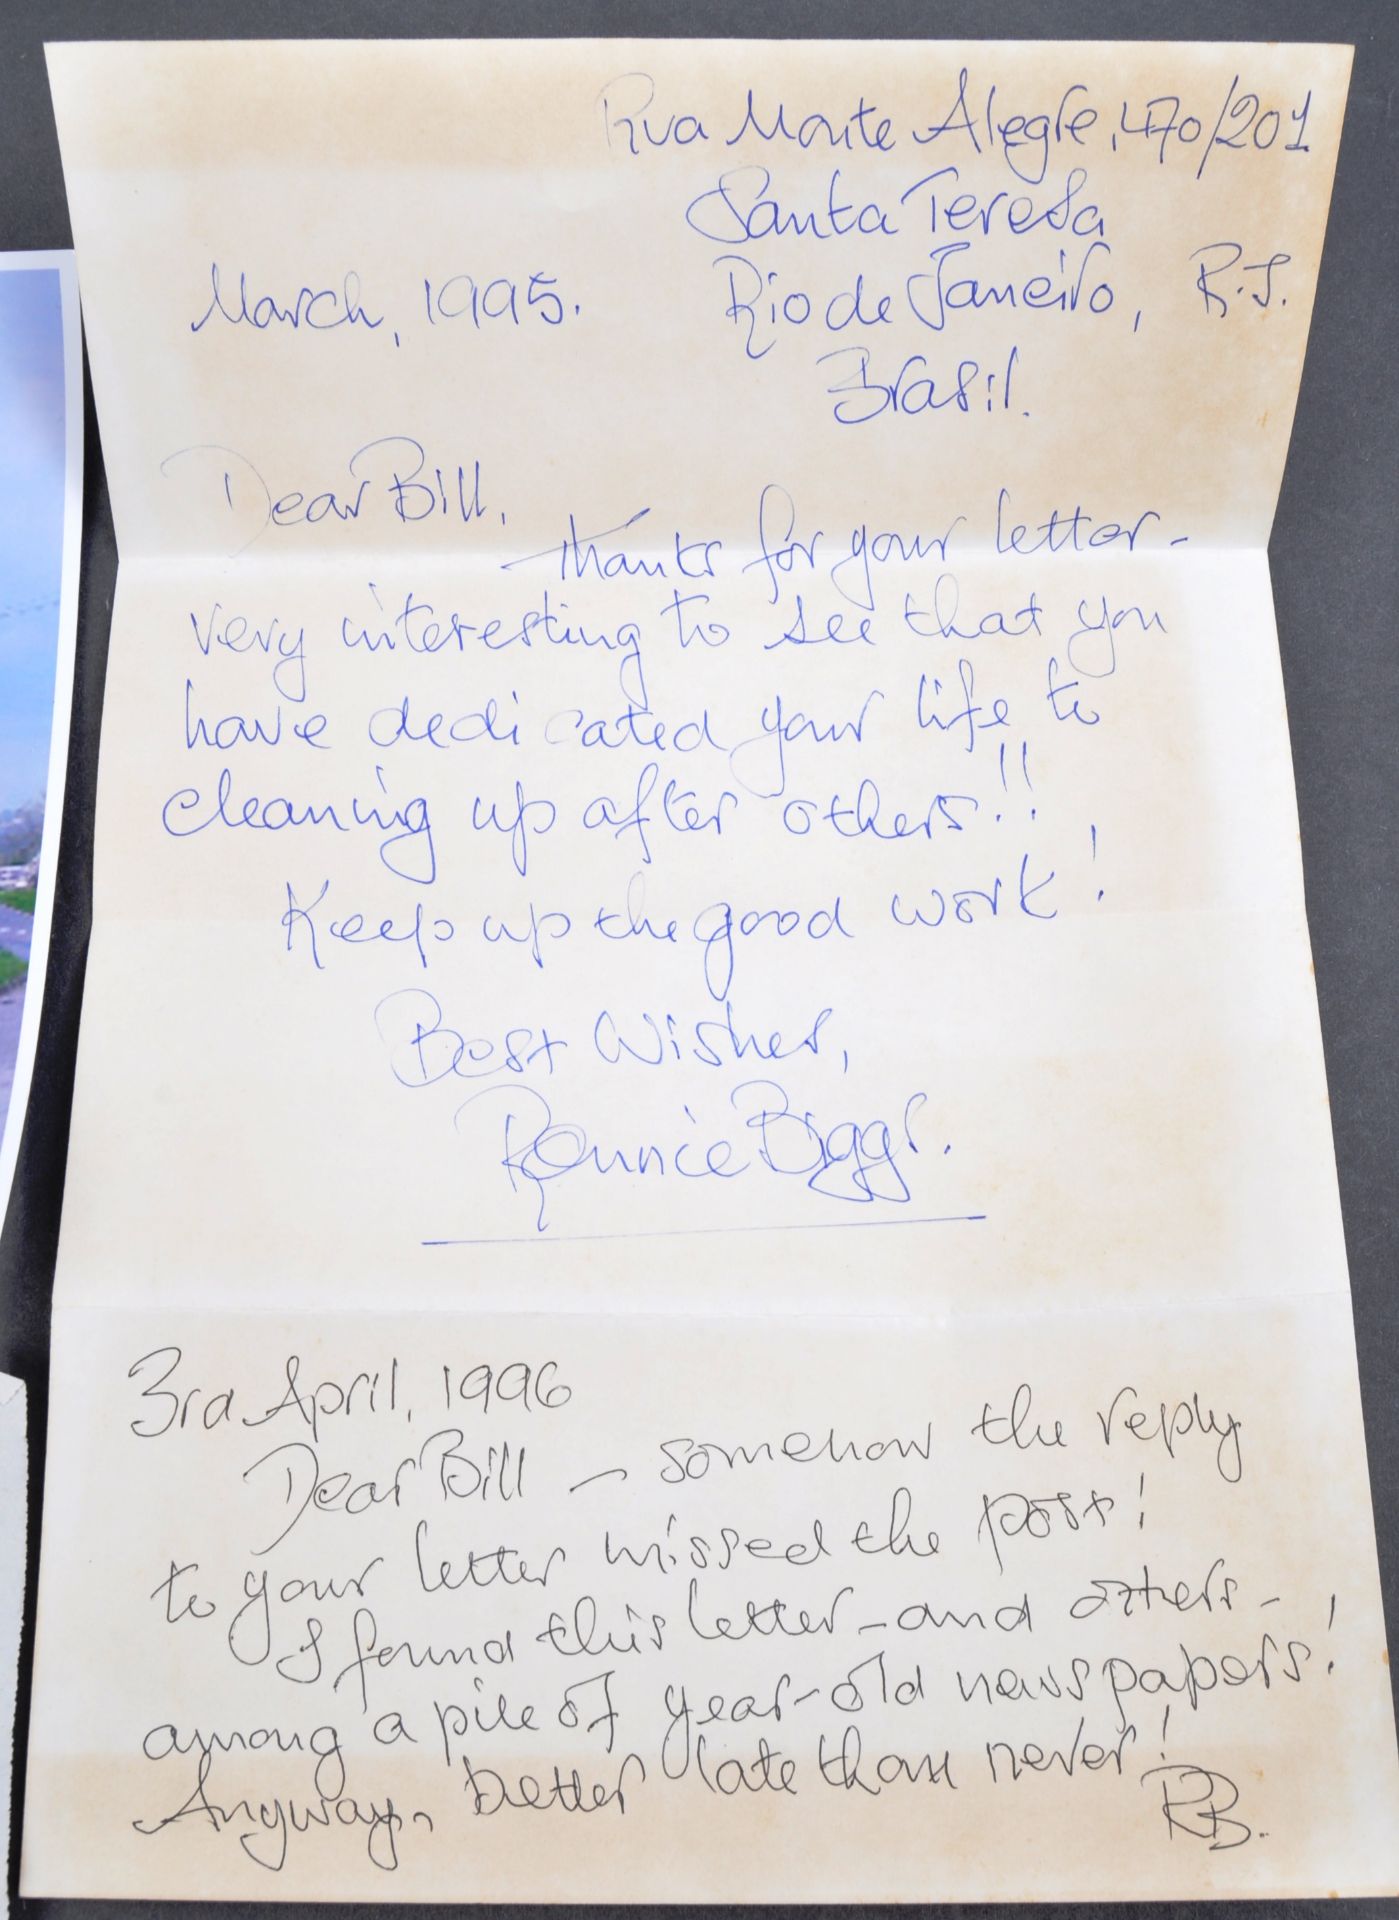 Rua Monte Alegre, 470/201
Santa Teresa
March, 1995. Rio de Janeiro, R.J.
Brasil.
Dear Bill,
thanks for your letter -
very interesting to see that you
have dedicated your life to
cleaning up after others!!
Keep up the good work!
Best Wishes,
Ronnie Biggs.
3rd April, 1996
Dear Bill - somehow the reply
to your letter missed the post!
I found this letter - and others -
among a pile of year-old newspapers!
Anyway, better late than never!
RB.